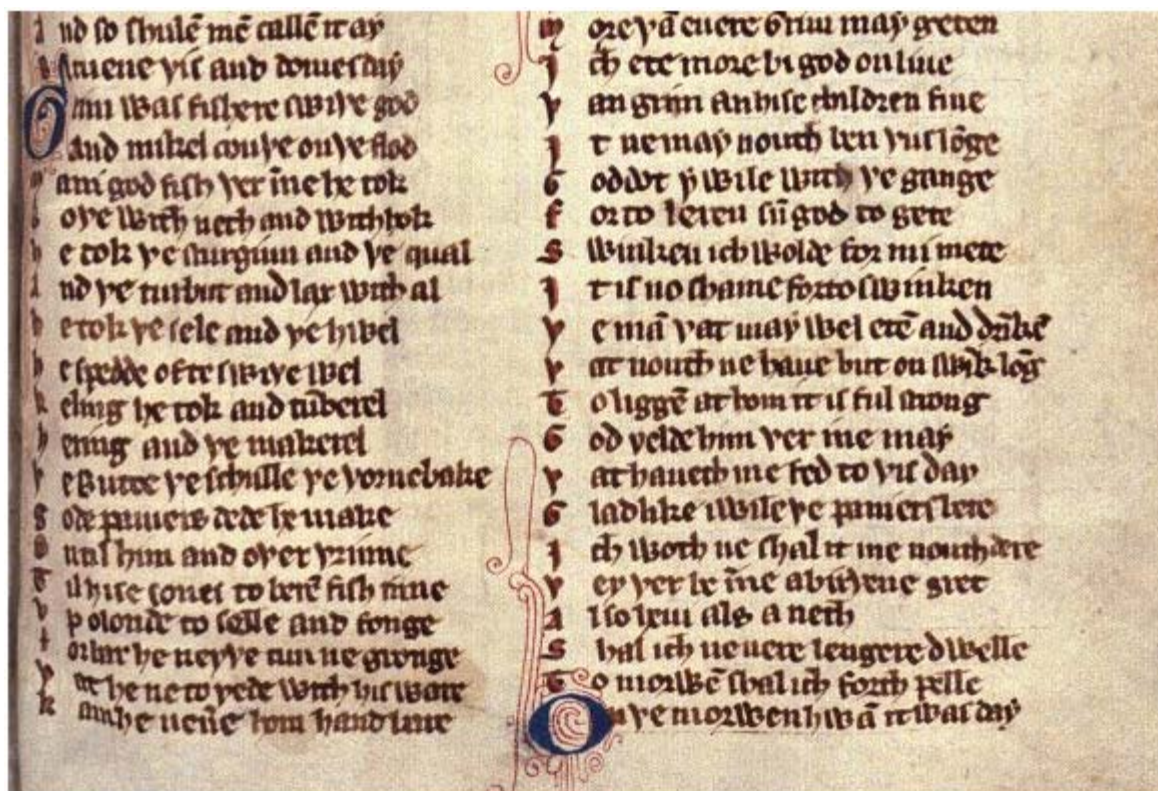 And so shulē mē callē it ay
Bituene þis and domesday
Grim was fishere swiþe god
and mikel couþe on þe flod
Mani god fish þer īne he tok
Boþe with neth and with hok
He tok þe sturgiun and þe qual
And þe turbut and lax with al
He tok þe sele and þe hwel
He spedde ofte swiþe wel
Keling he tok and tūberel
Hering and þe makerel
Þe Butte þe schulle þe þornebake
Gode paniers dede he make
On til him and oþer þrinne
Til hise sones to berē fish inne
Vp o londe to selle and fonge
Forbar he neyþe tun ne gronge
Þat he ne to yede with his ware
Kam he neuē hom hand bare
More þā euere Grim may geten
Ich ete more bi god on liue
Þan grim an hise children fiue
It ne may nouth ben þus lōge
Goddot y wile with þe gange
For to leren sū god to gete
Swinken ich wolde for mi mete
It is no shame forto swinken
Þe mā þat may wel etē and drīkē
Þat nouth ne haue but on swīk lōg
To liggē at hom it is ful strong
God yelde him þer ine may
Þat haueth me fed to þis day
Gladlike i wile þe paniers bere
Ich woth ne shal it me nouth dere
Þey þer be īne a birþene gret
Also heui als a neth
Shal ich neuere lengere dwelle
To morwē shal ich forth pelle
On þe morwen hwā it was day